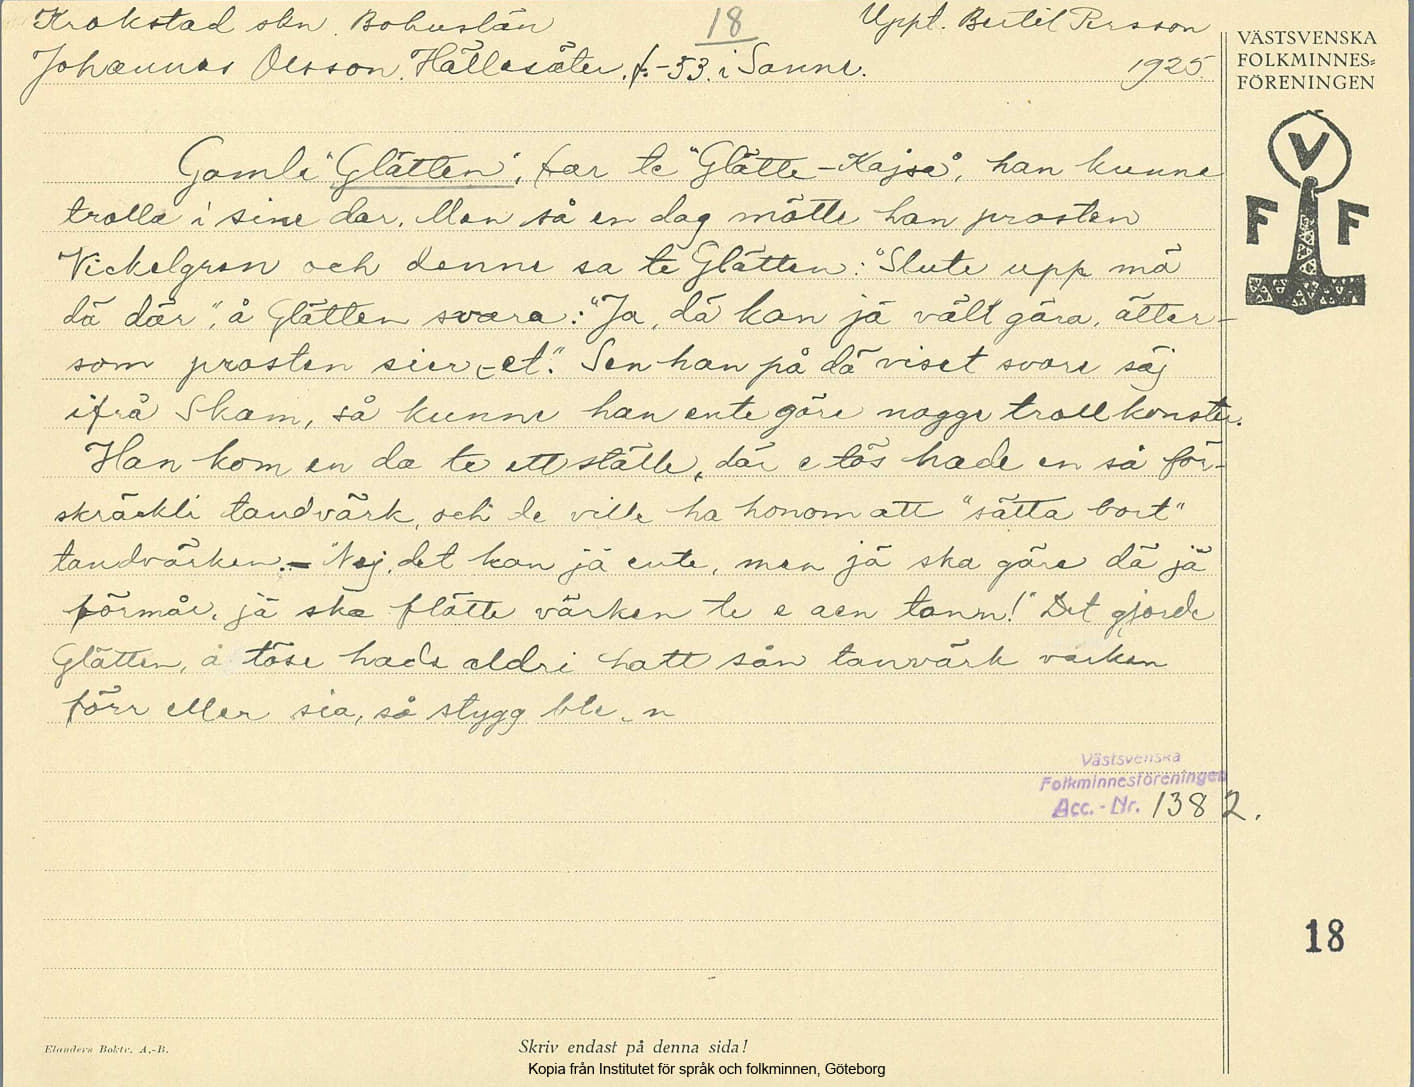 Krokstad skn. Bohuslän
18
Uppt. Bertil Persson
Johannes Olsson. Hällesäter. f. -53. i Sanne.
1925
VÄSTSVENSKA
FOLKMINNES=
FÖRENINGEN
V
F F
Gamle "Glätten", far te "Glätte-Kajsa", han kunne
trolla i sine dar. Men så en dag mötte han prosten
Vickelgren och denne sa te Glätten: "Slute upp mä
dä där", å Glätten svara: "Ja, dä kan jä väll göra, ätter-
som prosten sier-et". Sen han på dä viset svore säj
ifrå Skam, så kunne han ente göre nogge trollkonster.
Han kom en da te ett ställe, där e tös hade en så för-
skräckli tandvärk, och de ville ha honom att "sätta bort"
tandvärken. - "Nej, det kan jä ente, men jä ska göre dä jä
förmår, jä ska flötte värken te e aen tann!" Det gjorde
Glätten, å töse hade aldri hatt sån tanvärk varken
förr eller sia, så stygg ble-n
Västsvenska
Folkminnesföreningen
Acc.-Nr. 1382.
18
Elanders Boktr. A.-B.
Skriv endast på denna sida!
Kopia från Institutet för språk och folkminnen, Göteborg